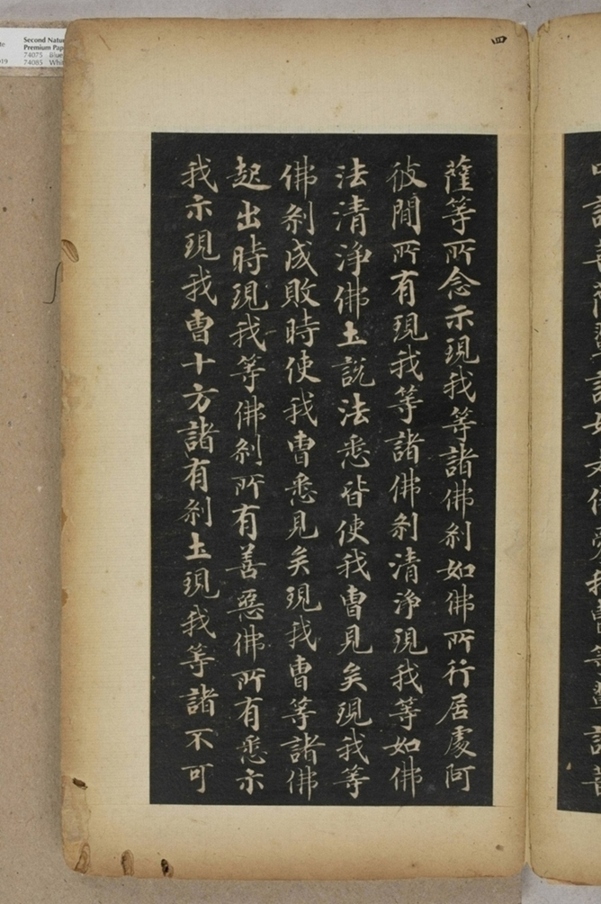 四
薩等所念示現我等諸佛剎如佛所行居處阿
彼間所有現我等諸佛剎清淨現我等如佛
法清淨佛土說法悉皆使我曹見矣現我等
佛剎成敗時使我曹悉見矣現我曹等諸佛
起出時現我等佛剎所有善惡佛所有悉示
我示現我曹十方諸有剎土現我等諸不可
Second
Premium
74075
74085